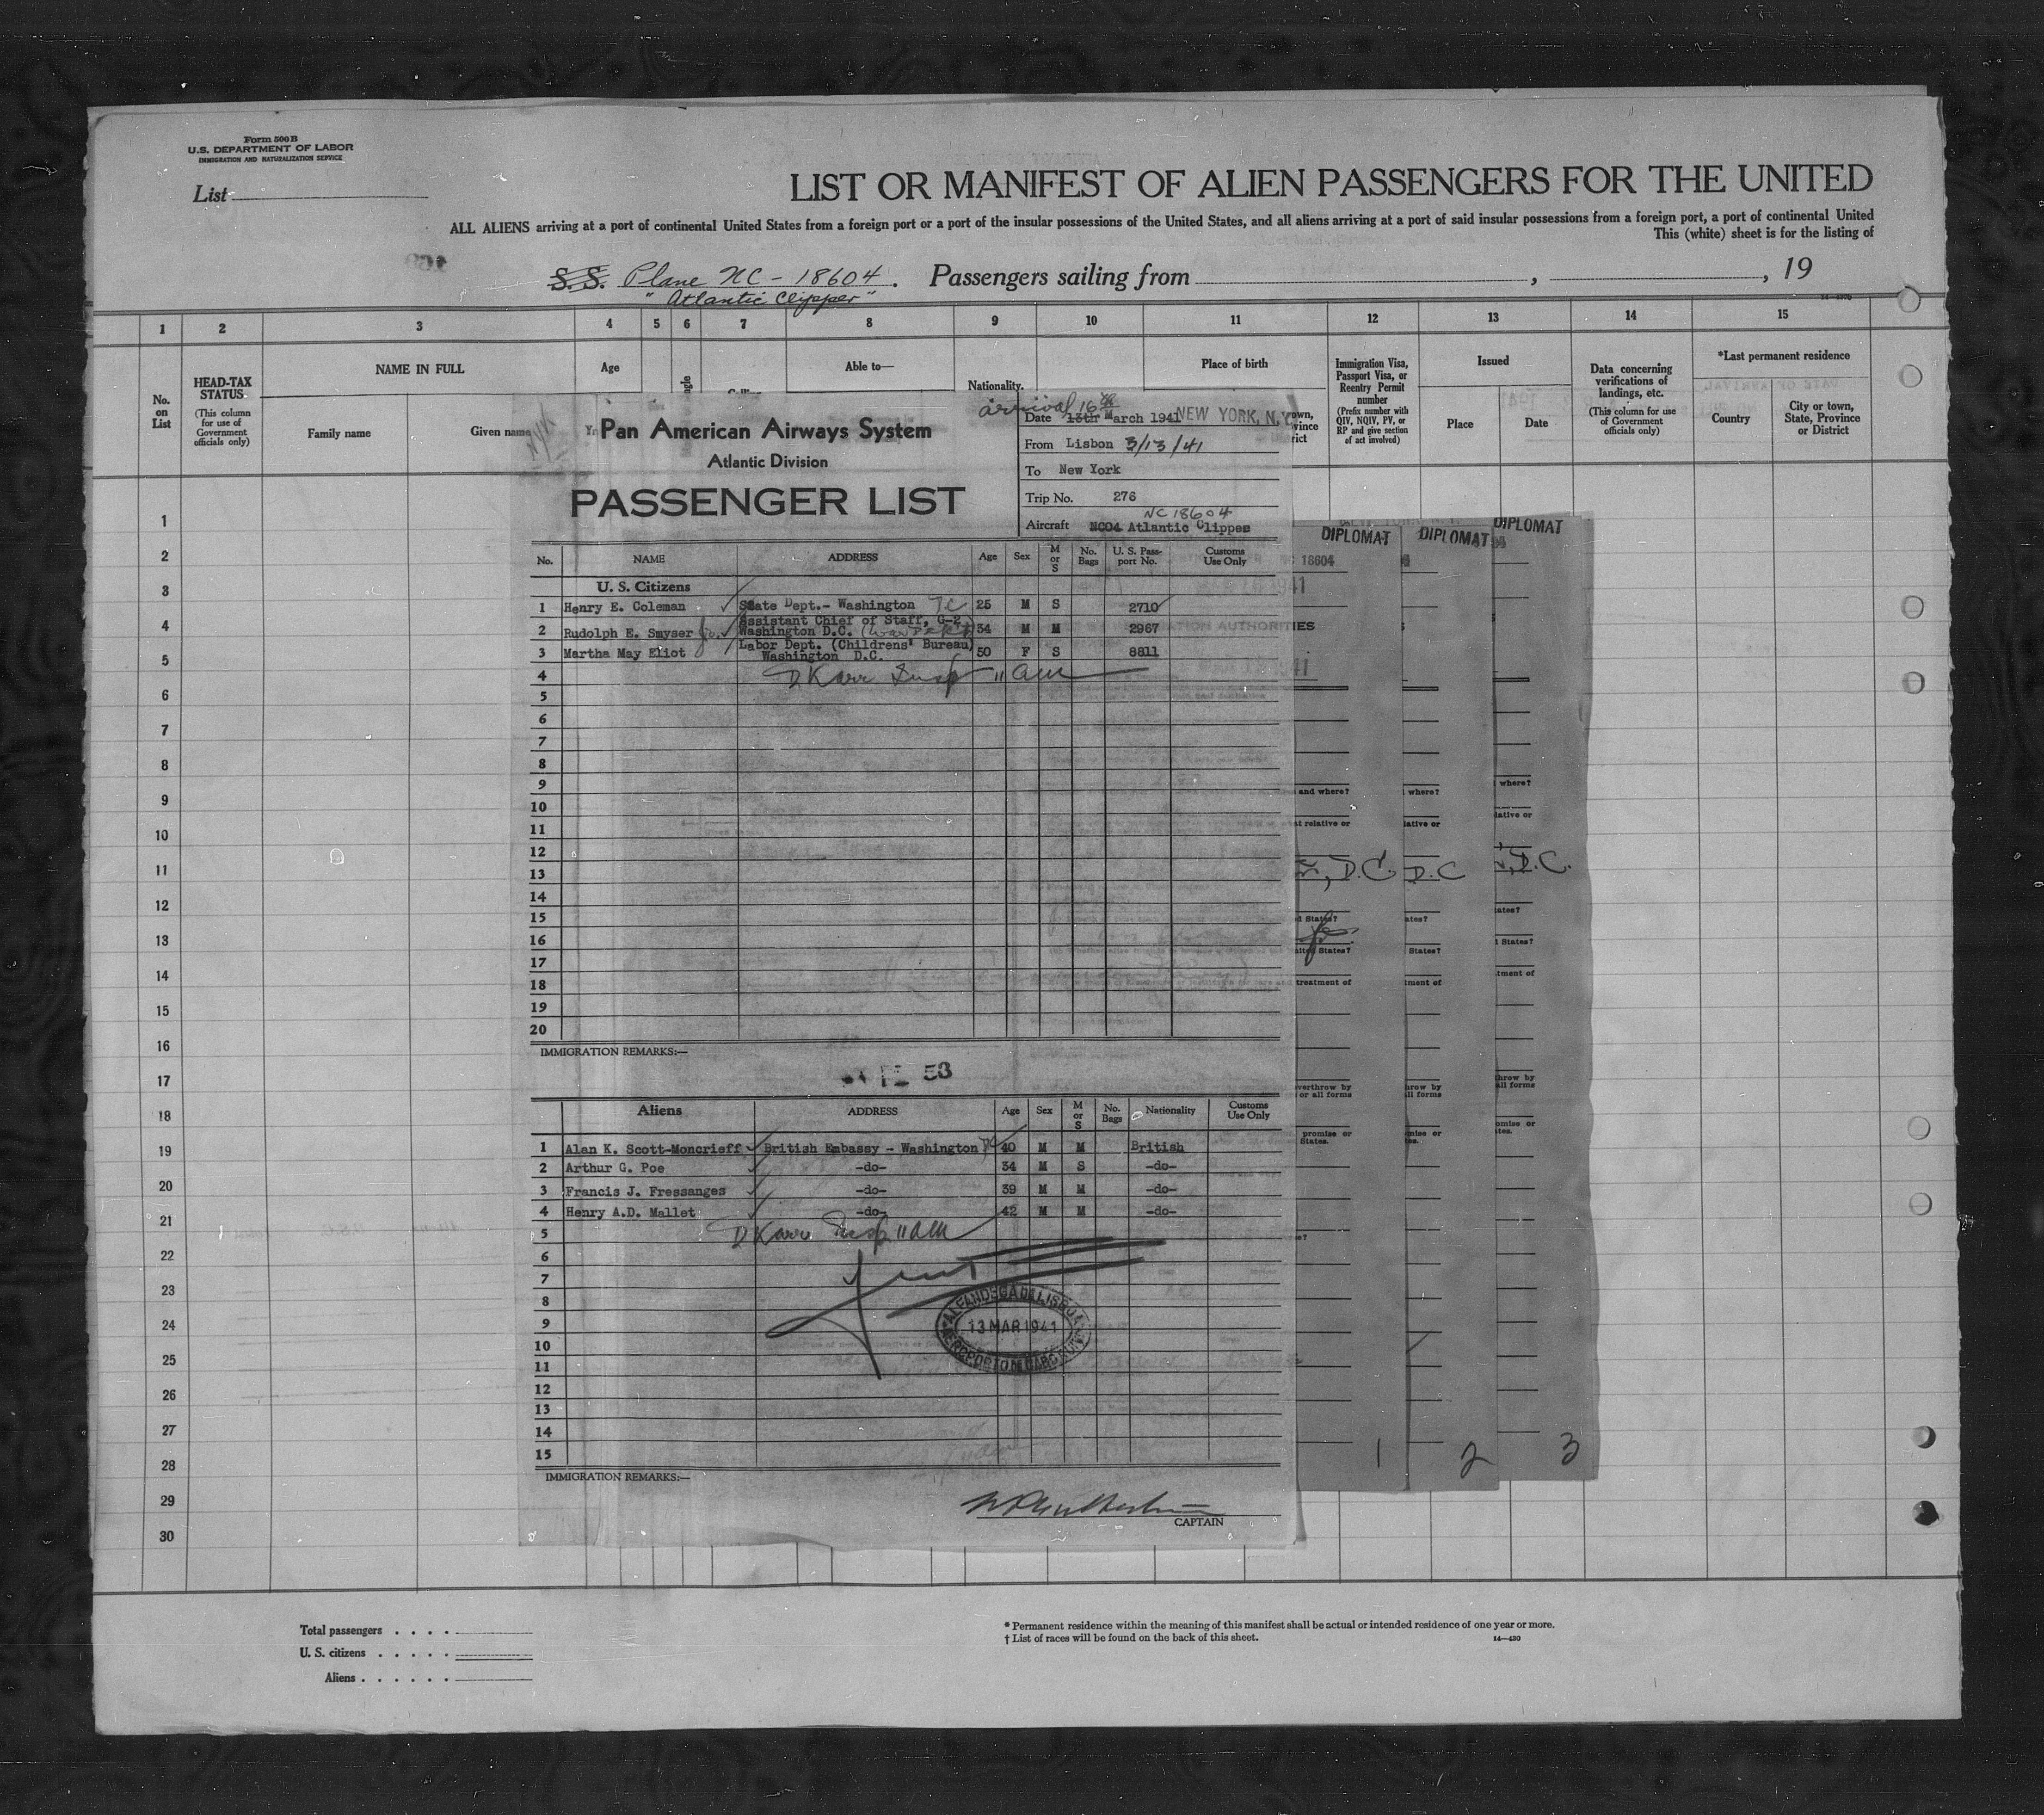 Form 500B
U.S. DEPARTMENT OF LABOR
IMMIGRATION AND NATURALIZATION SERVICE
List
LIST OR MANIFEST OF ALIEN PASSENGERS FOR THE UNITED
ALL ALIENS arriving at a port of continental United States from a foreign port or a port of the insular possessions of the United States, and all aliens arriving at a port of said insular possessions from a foreign port, a port of continental United
This (white) sheet is for the listing of
S.S. Plane NC-18604. Passengers sailing from , , 19
"Atlantic Clipper"
1 2 3 4 5 6 7 8 9 10 11 12 13 14 15
No. on List
HEAD-TAX STATUS
(This column for use of Government officials only)
NAME IN FULL
Family name
Given name
Age
Able to—
Nationality.
Place of birth
Immigration Visa, Passport Visa, or Reentry Permit number
(Prefix number with QIV, NQIV, PV, or RP and give section of act involved)
Issued
Place
Date
Data concerning verifications of landings, etc.
(This column for use of Government officials only)
*Last permanent residence
Country
City or town, State, Province or District
Pan American Airways System
Atlantic Division
PASSENGER LIST
arrival 16th
Date 13th March 1941 NEW YORK, N.Y.
From Lisbon 3/13/41
To New York
Trip No. 276
NC 18604
Aircraft NC04 Atlantic Clipper
No. NAME ADDRESS Age Sex M or S No. Bags U. S. Passport No. Customs Use Only
U. S. Citizens
1 Henry E. Coleman State Dept.- Washington DC 25 M S 2710
2 Rudolph E. Smyser Assistant Chief of Staff, G-2 Washington D.C. (War Dept) 34 M M 2967
3 Martha May Eliot Labor Dept. (Childrens' Bureau) Washington D.C. 50 F S 8811
4 D Karr Insp 11 AM
5
6
7
8
9
10
11
12
13
14
15
16
17
18
19
20
IMMIGRATION REMARKS:—
53
Aliens ADDRESS Age Sex M or S No. Bags Nationality Customs Use Only
1 Alan K. Scott-Moncrieff British Embassy - Washington DC 40 M M British
2 Arthur G. Poe -do- 34 M S -do-
3 Francis J. Fressanges -do- 39 M M -do-
4 Henry A.D. Mallet -do- 42 M M -do-
5 D Karr Insp 11 AM
6
7
8
9
10
11
12
13
14
15
ALFANDEGA DE LISBOA
13 MAR 1941
IMMIGRATION REMARKS:—
CAPTAIN
DIPLOMAT
DIPLOMAT
DIPLOMAT
18604
and where?
where?
where?
, D.C.
D.C
, D.C.
treatment of
1
2
3
1
2
3
4
5
6
7
8
9
10
11
12
13
14
15
16
17
18
19
20
21
22
23
24
25
26
27
28
29
30
Total passengers
U. S. citizens
Aliens
* Permanent residence within the meaning of this manifest shall be actual or intended residence of one year or more.
† List of races will be found on the back of this sheet.
14—430